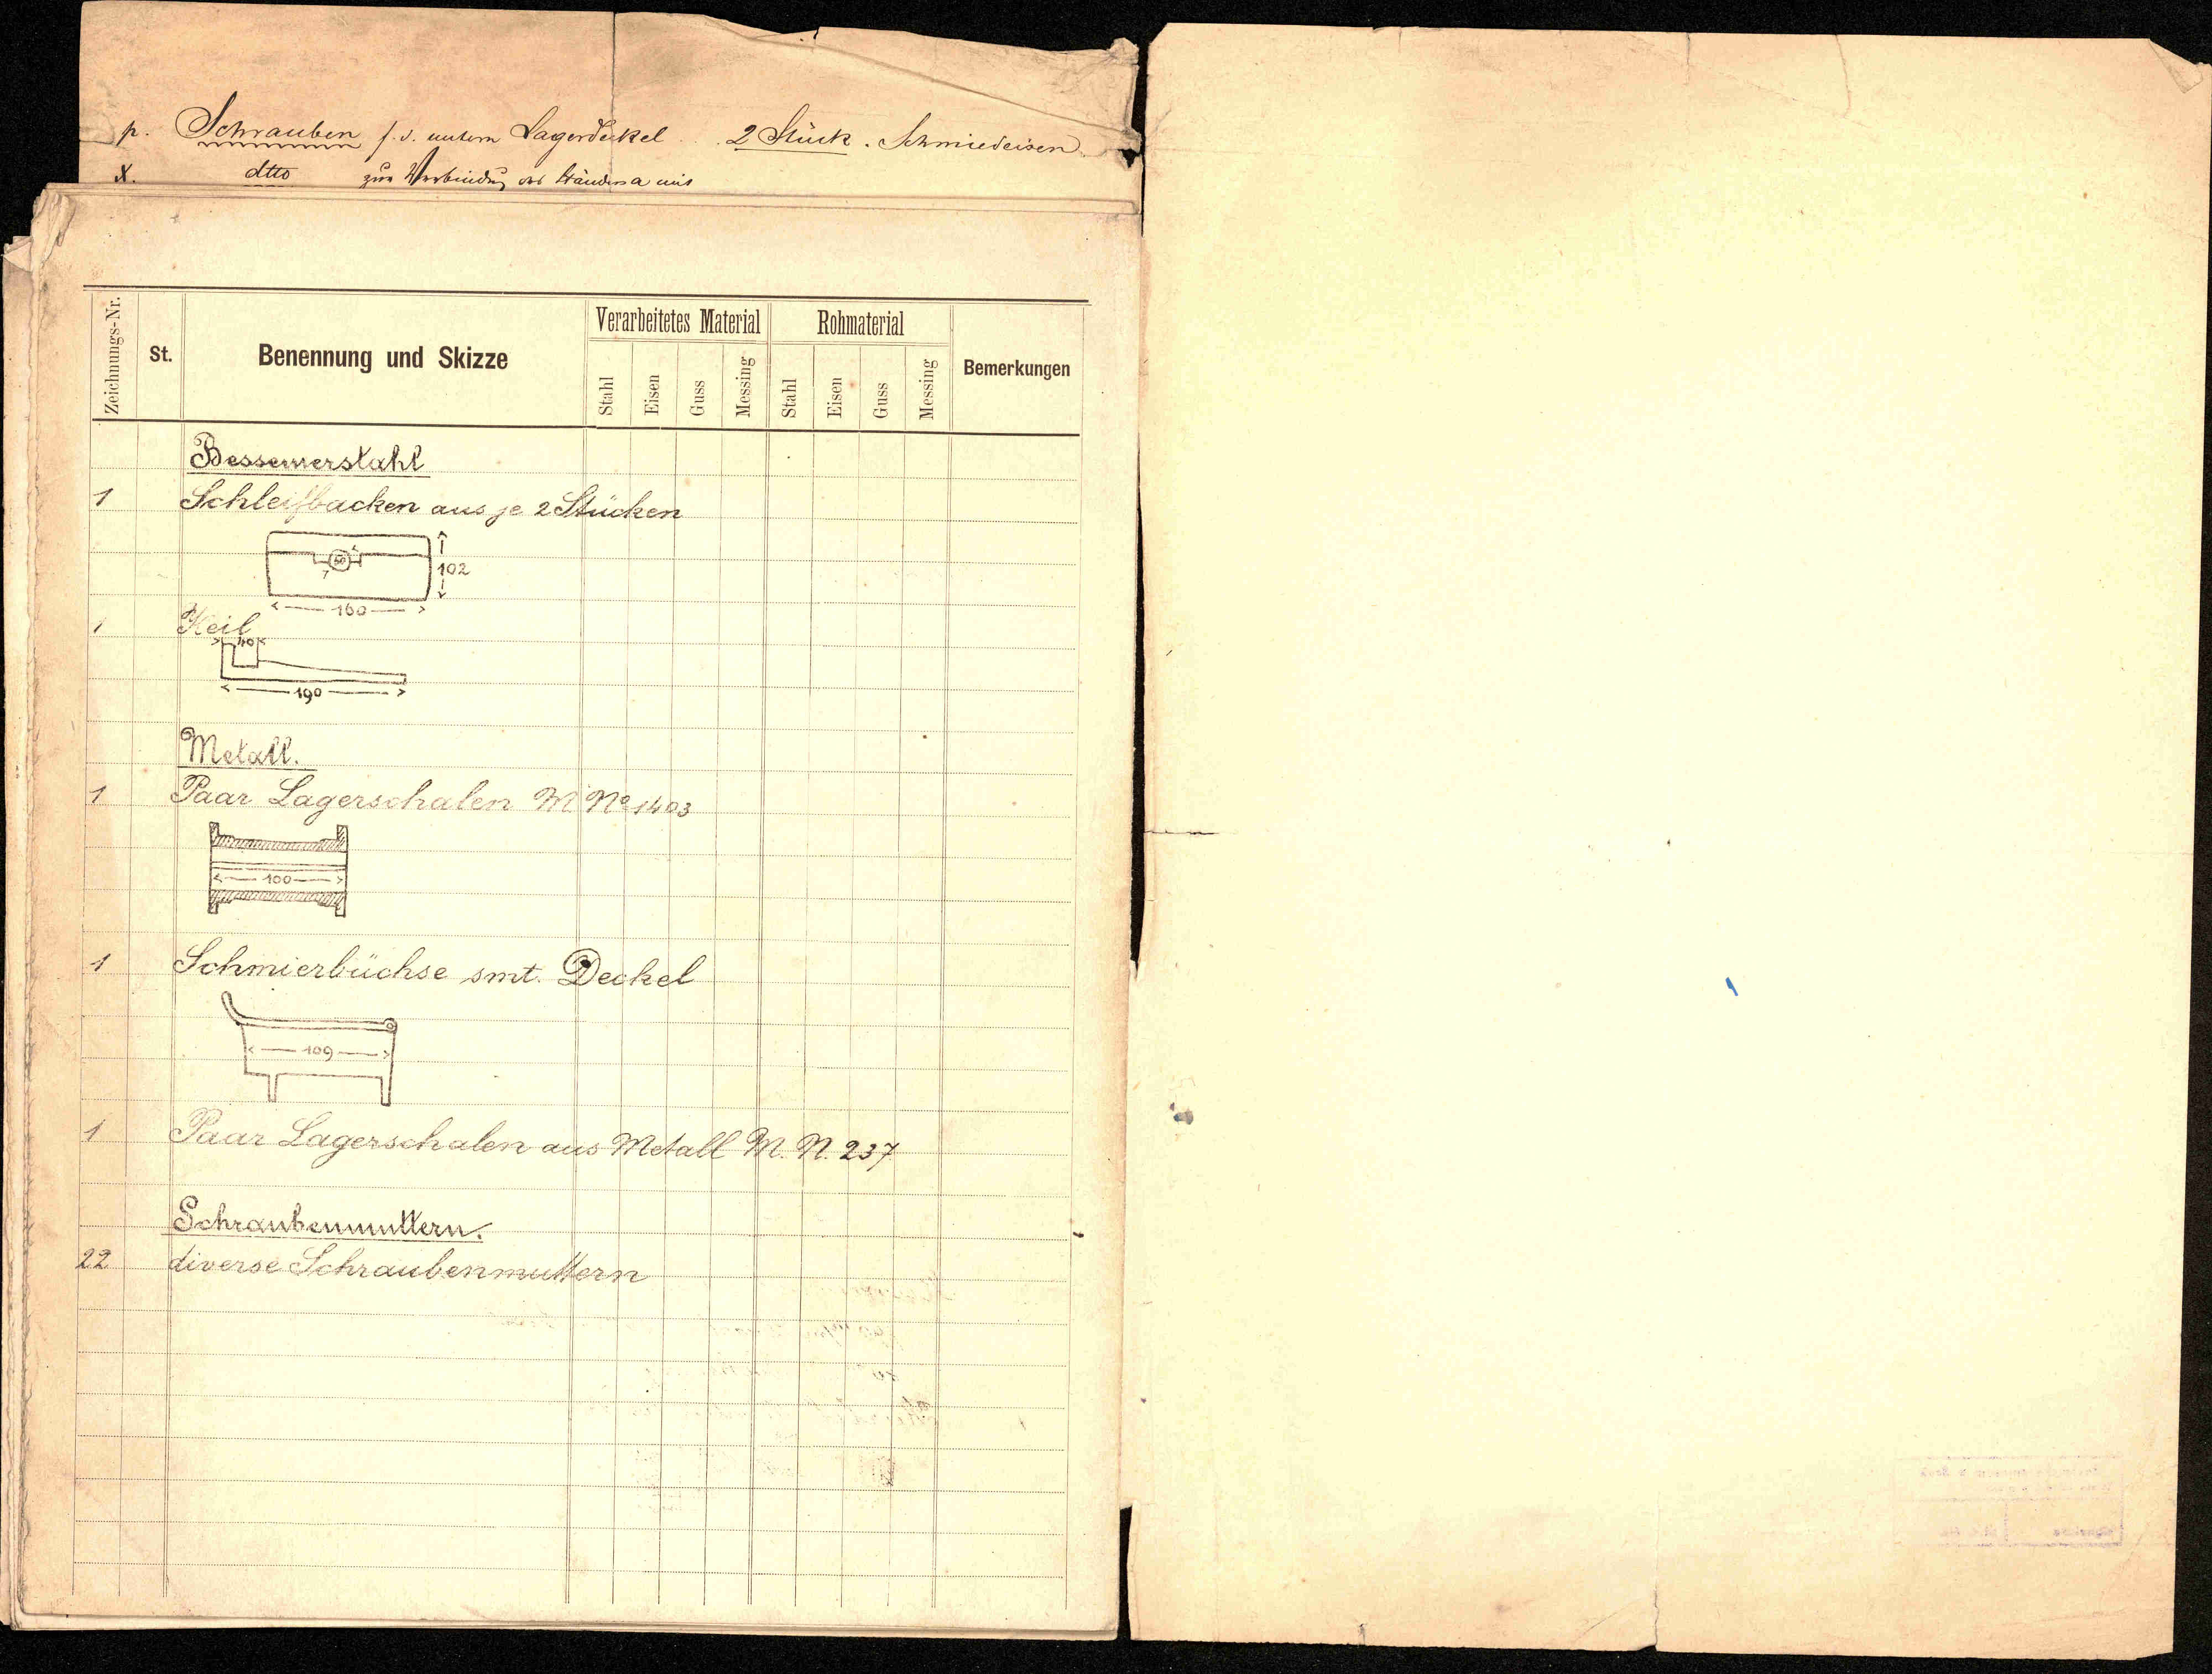 p. Schrauben f. d. untern Lagerdeckel . . 2 Stück . Schmiedeisen
dtto zur Verbindung des Ständers a mit
Zeichnungs-Nr.
St.
Benennung und Skizze
Verarbeitetes Material
Rohmaterial
Bemerkungen
Stahl Eisen Guss Messing Stahl Eisen Guss Messing
Bessemerstahl
1 Schleifbacken aus je 2 Stücken
50
7
102
160
1 Keil
40
190
Metall.
1 Paar Lagerschalen M. No 1403
100
1 Schmierbüchse smt. Deckel
109
1 Paar Lagerschalen aus Metall M. N. 237
Schraubenmuttern.
22 diverse Schraubenmuttern